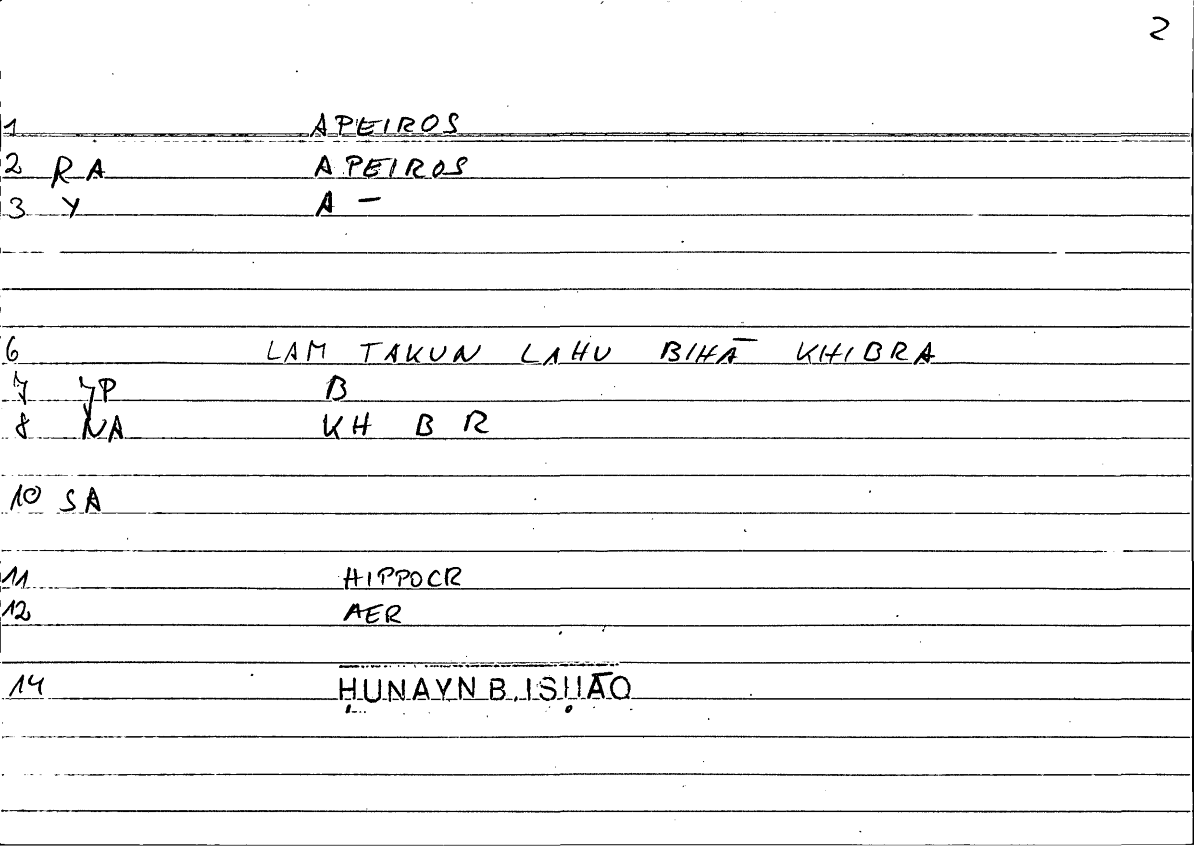 2
1 APEIROS
2 RA APEIROS
3 Y A –
6 LAM TAKUN LAHU BIHĀ KHIBRA
7 JP B
8 NA KH B R
10 SA
11 HIPPOCR
12 AER
14 ḤUNAYN B. ISḤĀQ